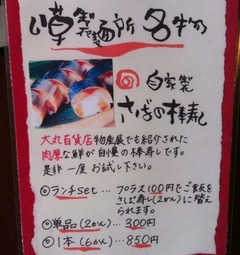 製麺所 名物
自家製
さばの棒寿し
大丸百貨店物産展でも紹介された
肉厚な鮮が自慢の棒寿しです。
是非一度お試し下さい。
◎ランチset… プラス100円でご飯を
さば寿し(2かん)に替え
られます。
◎単品(2かん)… 300円
◎1本(6かん)… 850円